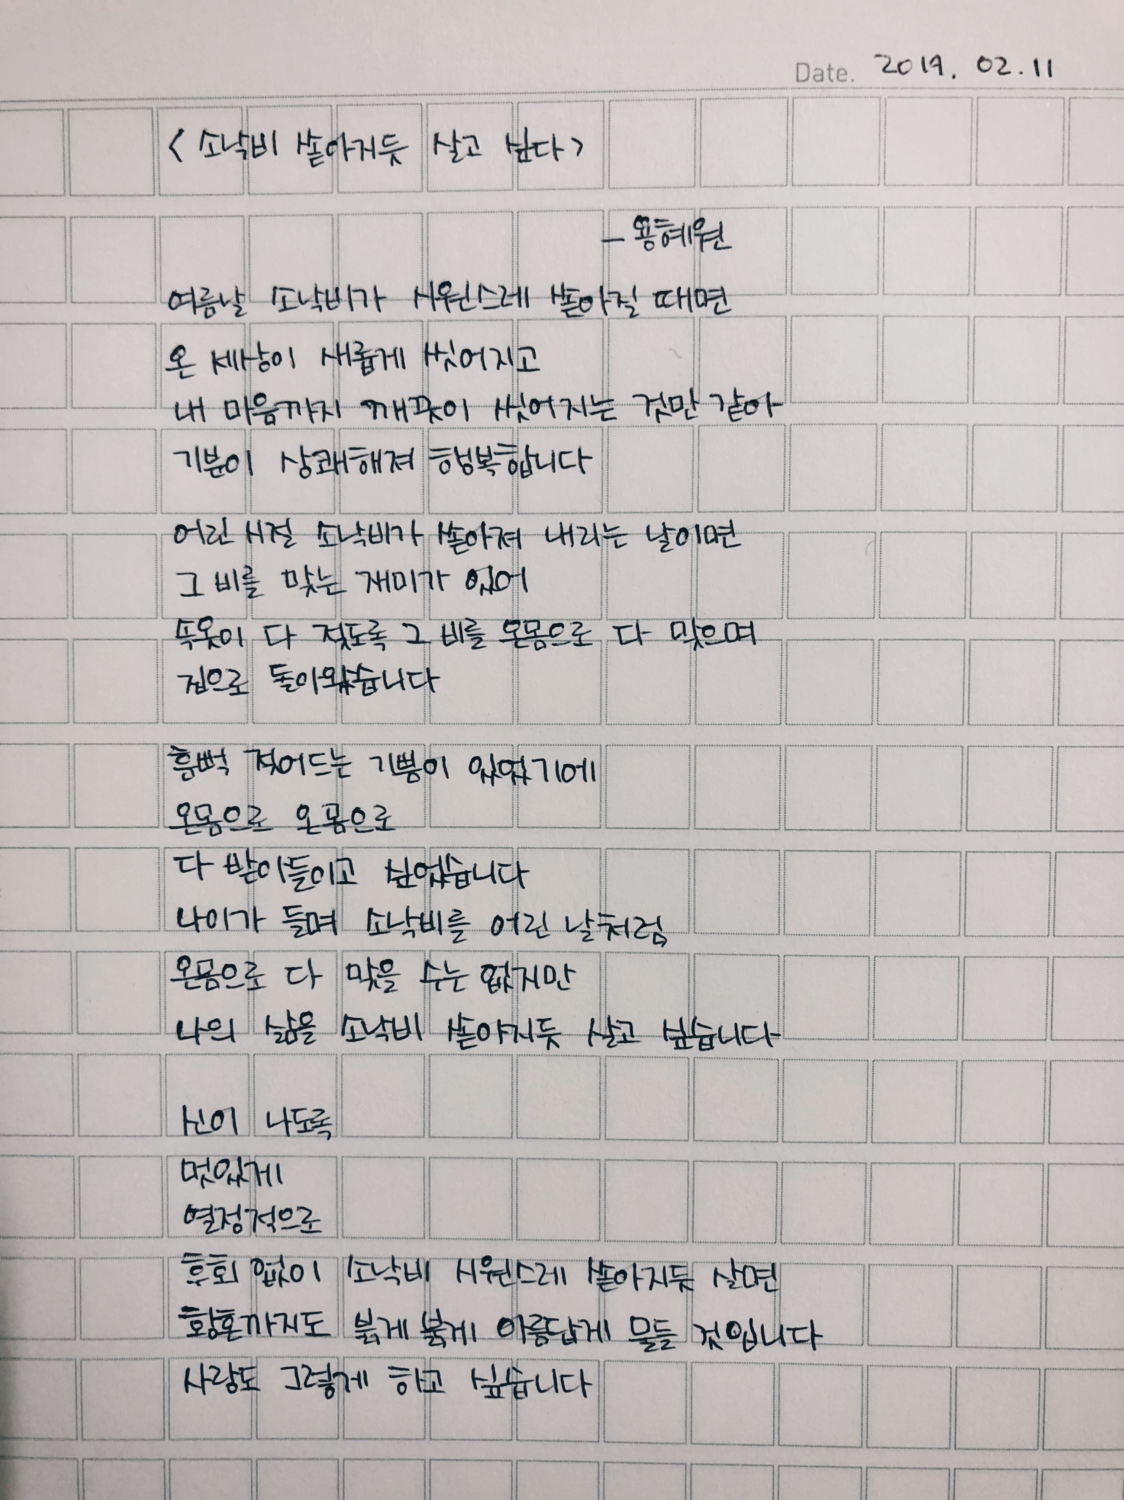 Date. 2019. 02. 11
< 소낙비 쏟아지듯 살고 싶다 >
- 용혜원
여름날 소낙비가 시원스레 쏟아질 때면
온 세상이 새롭게 씻어지고
내 마음까지 깨끗이 씻어지는 것만 같아
기분이 상쾌해져 행복합니다
어린 시절 소낙비가 쏟아져 내리는 날이면
그 비를 맞는 재미가 있어
속옷이 다 젖도록 그 비를 온몸으로 다 맞으며
집으로 돌아왔습니다
흠뻑 젖어드는 기쁨이 있었기에
온몸으로 온몸으로
다 받아들이고 싶었습니다
나이가 들며 소낙비를 어린 날처럼
온몸으로 다 맞을 수는 없지만
나의 삶을 소낙비 쏟아지듯 살고 싶습니다
신이 나도록
멋있게
열정적으로
후회 없이 소낙비 시원스레 쏟아지듯 살면
황혼까지도 붉게 붉게 아름답게 물들 것입니다
사랑도 그렇게 하고 싶습니다